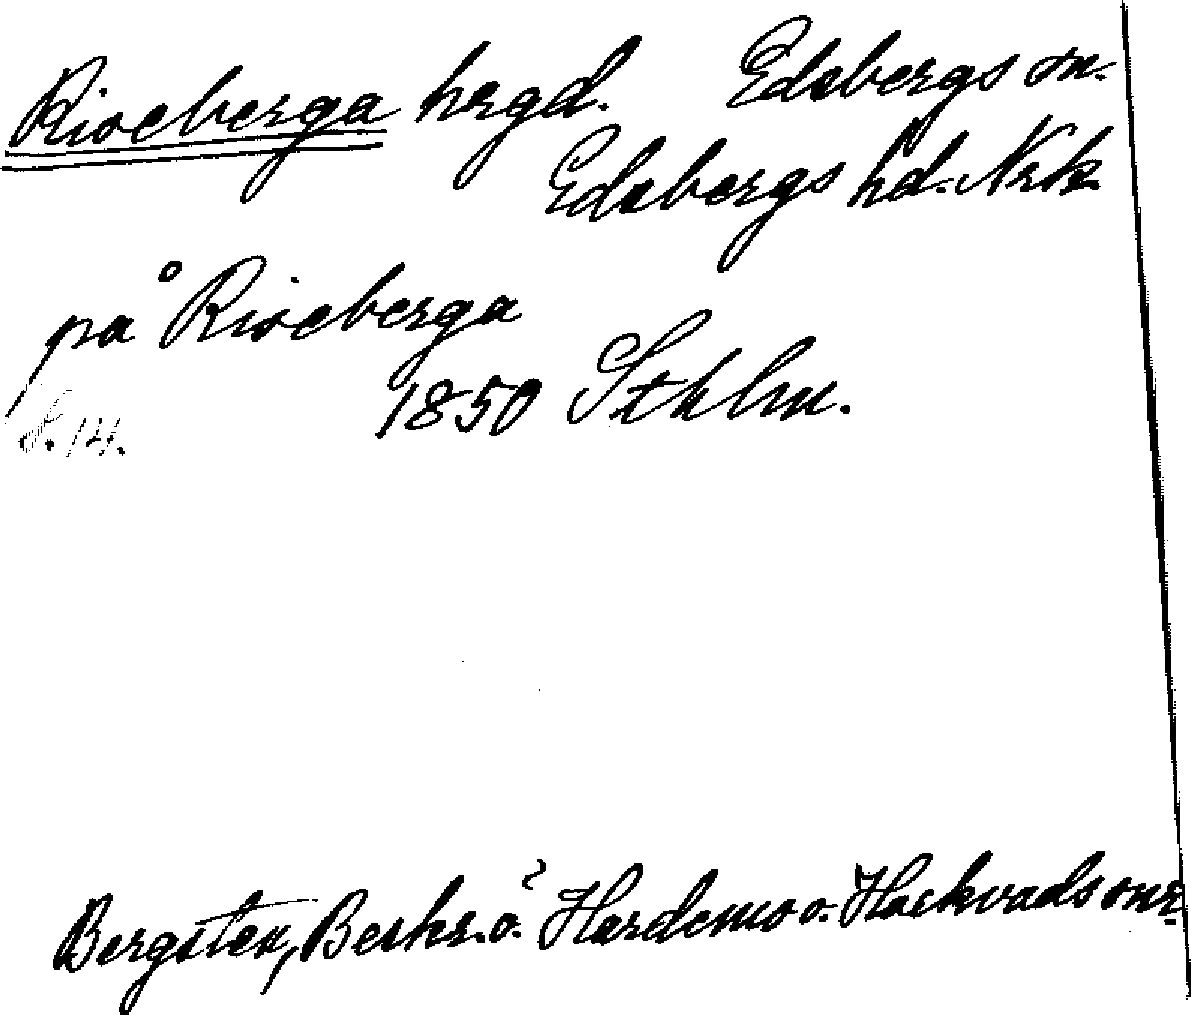 Riseberga hrgd. Edsbergs sn.
Edsbergs hd. Nrk.
på Riseberga
1850 Sthlm.
S. 14.
Bergsten, Beskr. ö. Hardemo o. Hackvads snr